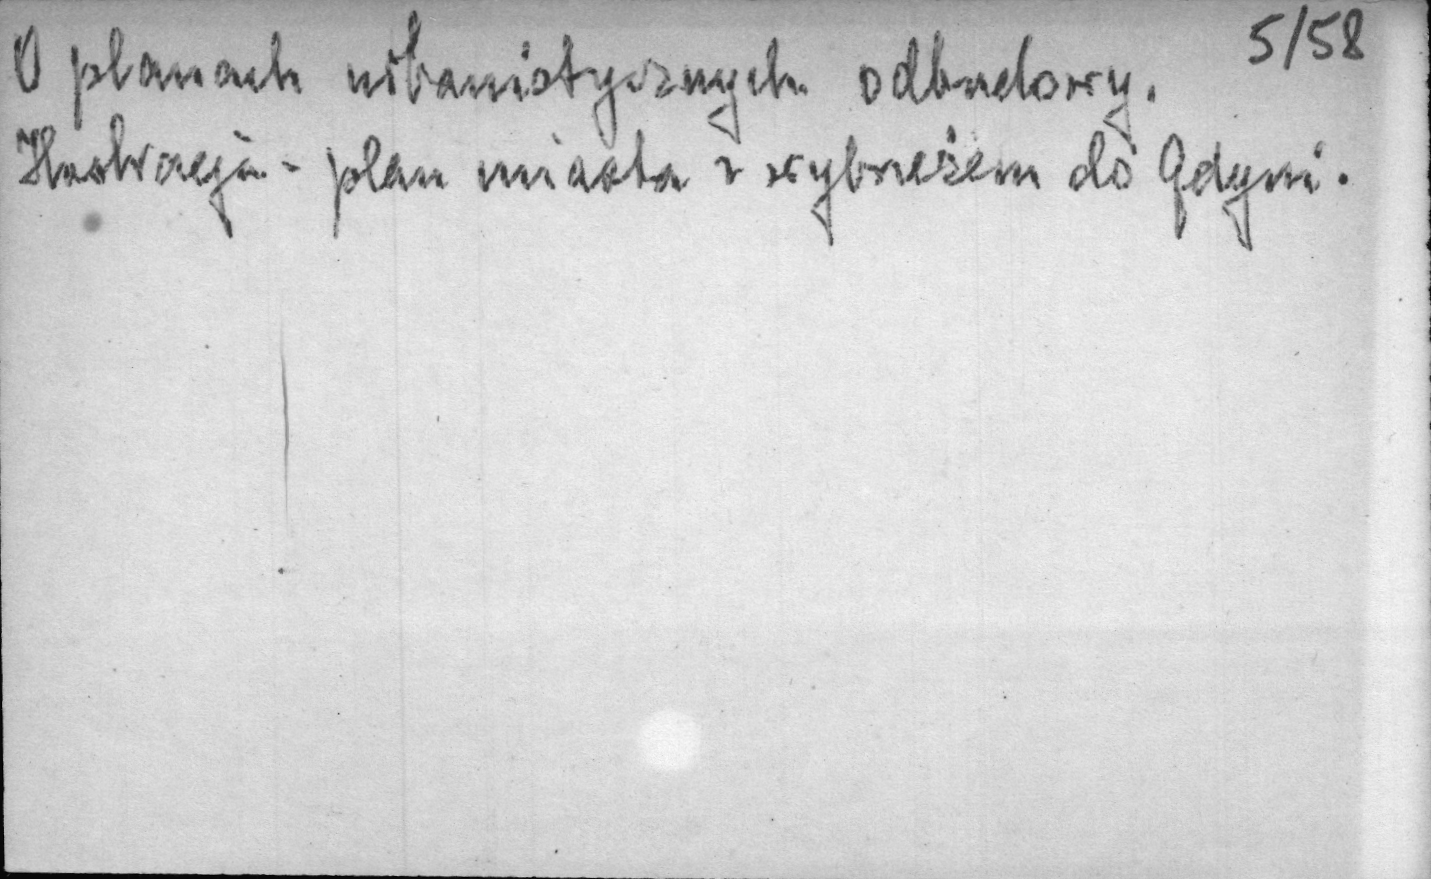 5/58
O planach urbanistycznych odbudowy.
Ilustracja - plan miasta z wybrzeżem do Gdyni.